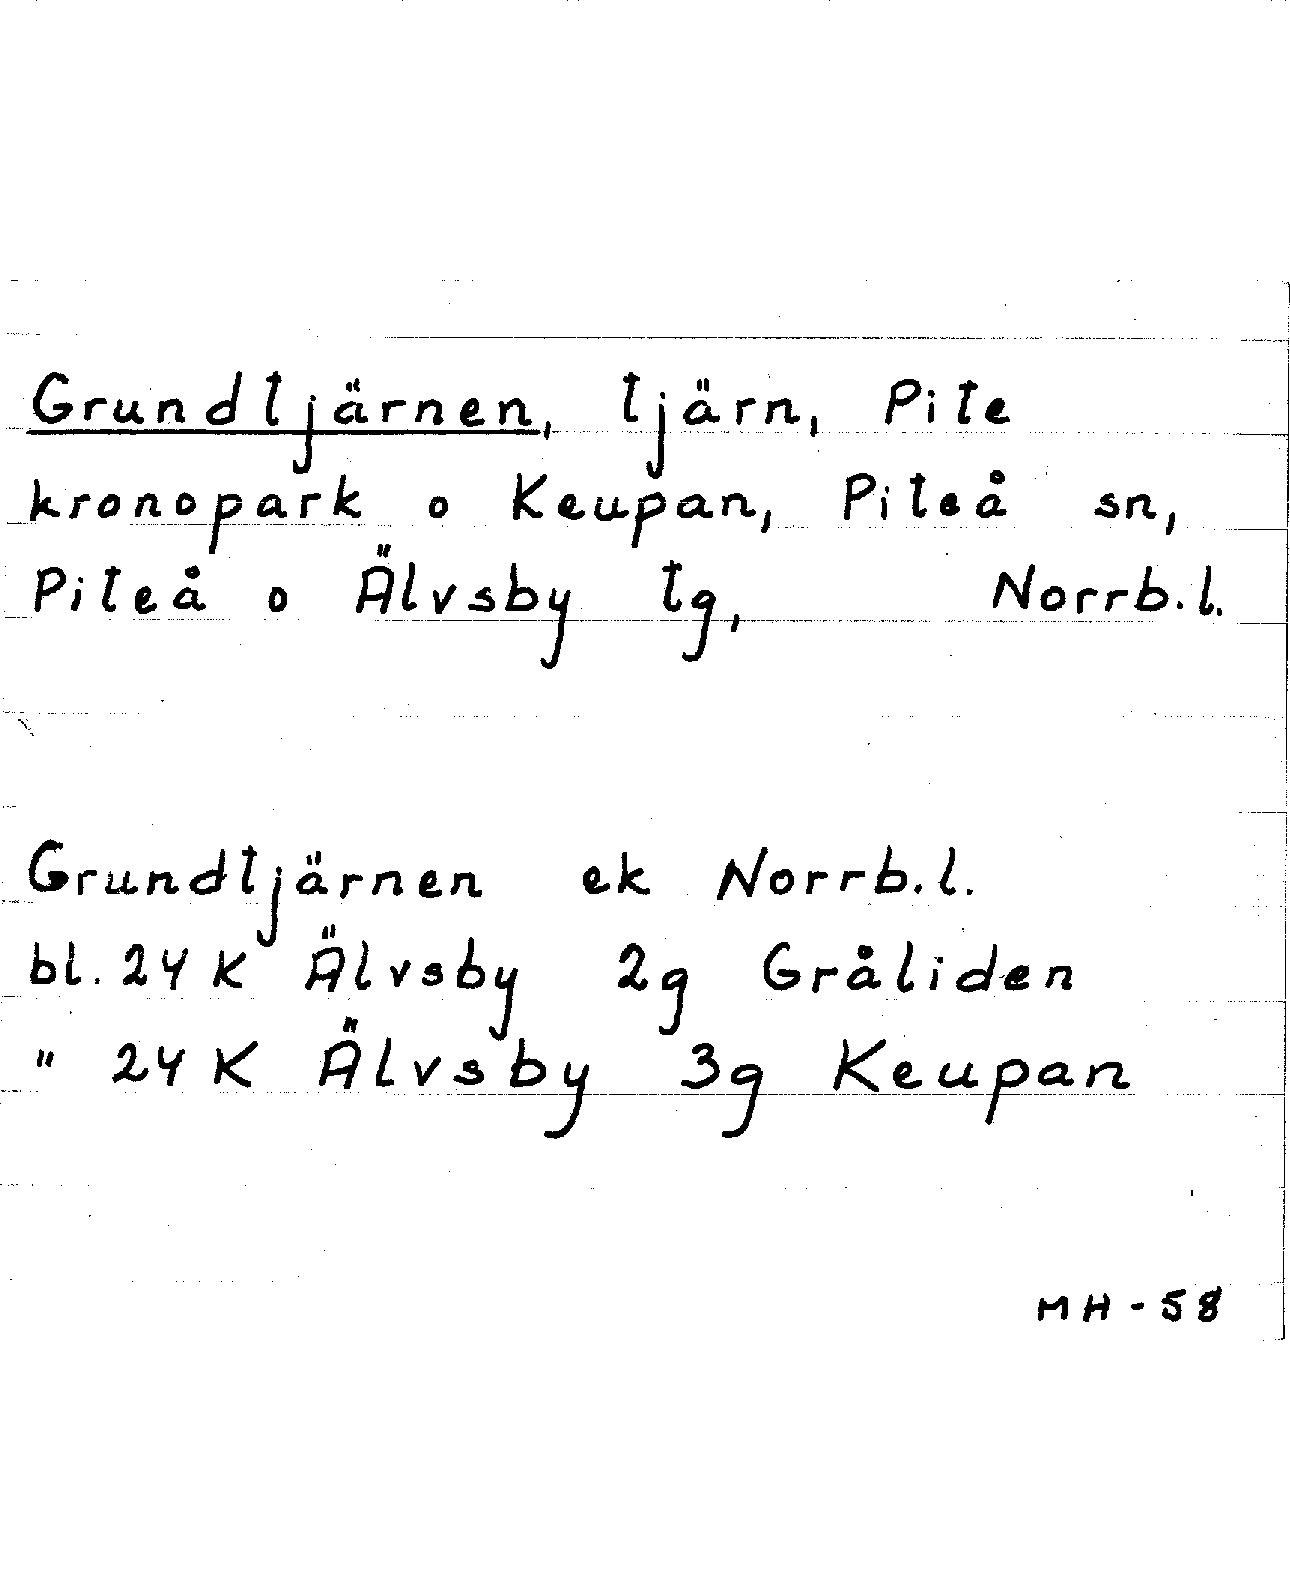 Grundtjärnen, tjärn, Pite
kronopark o Keupan, Piteå sn,
Piteå o Älvsby tg, Norrb.l.
Grundtjärnen ek Norrb.l.
bl. 24 K Älvsby 2g Gråliden
" 24 K Älvsby 3g Keupan
MH-58